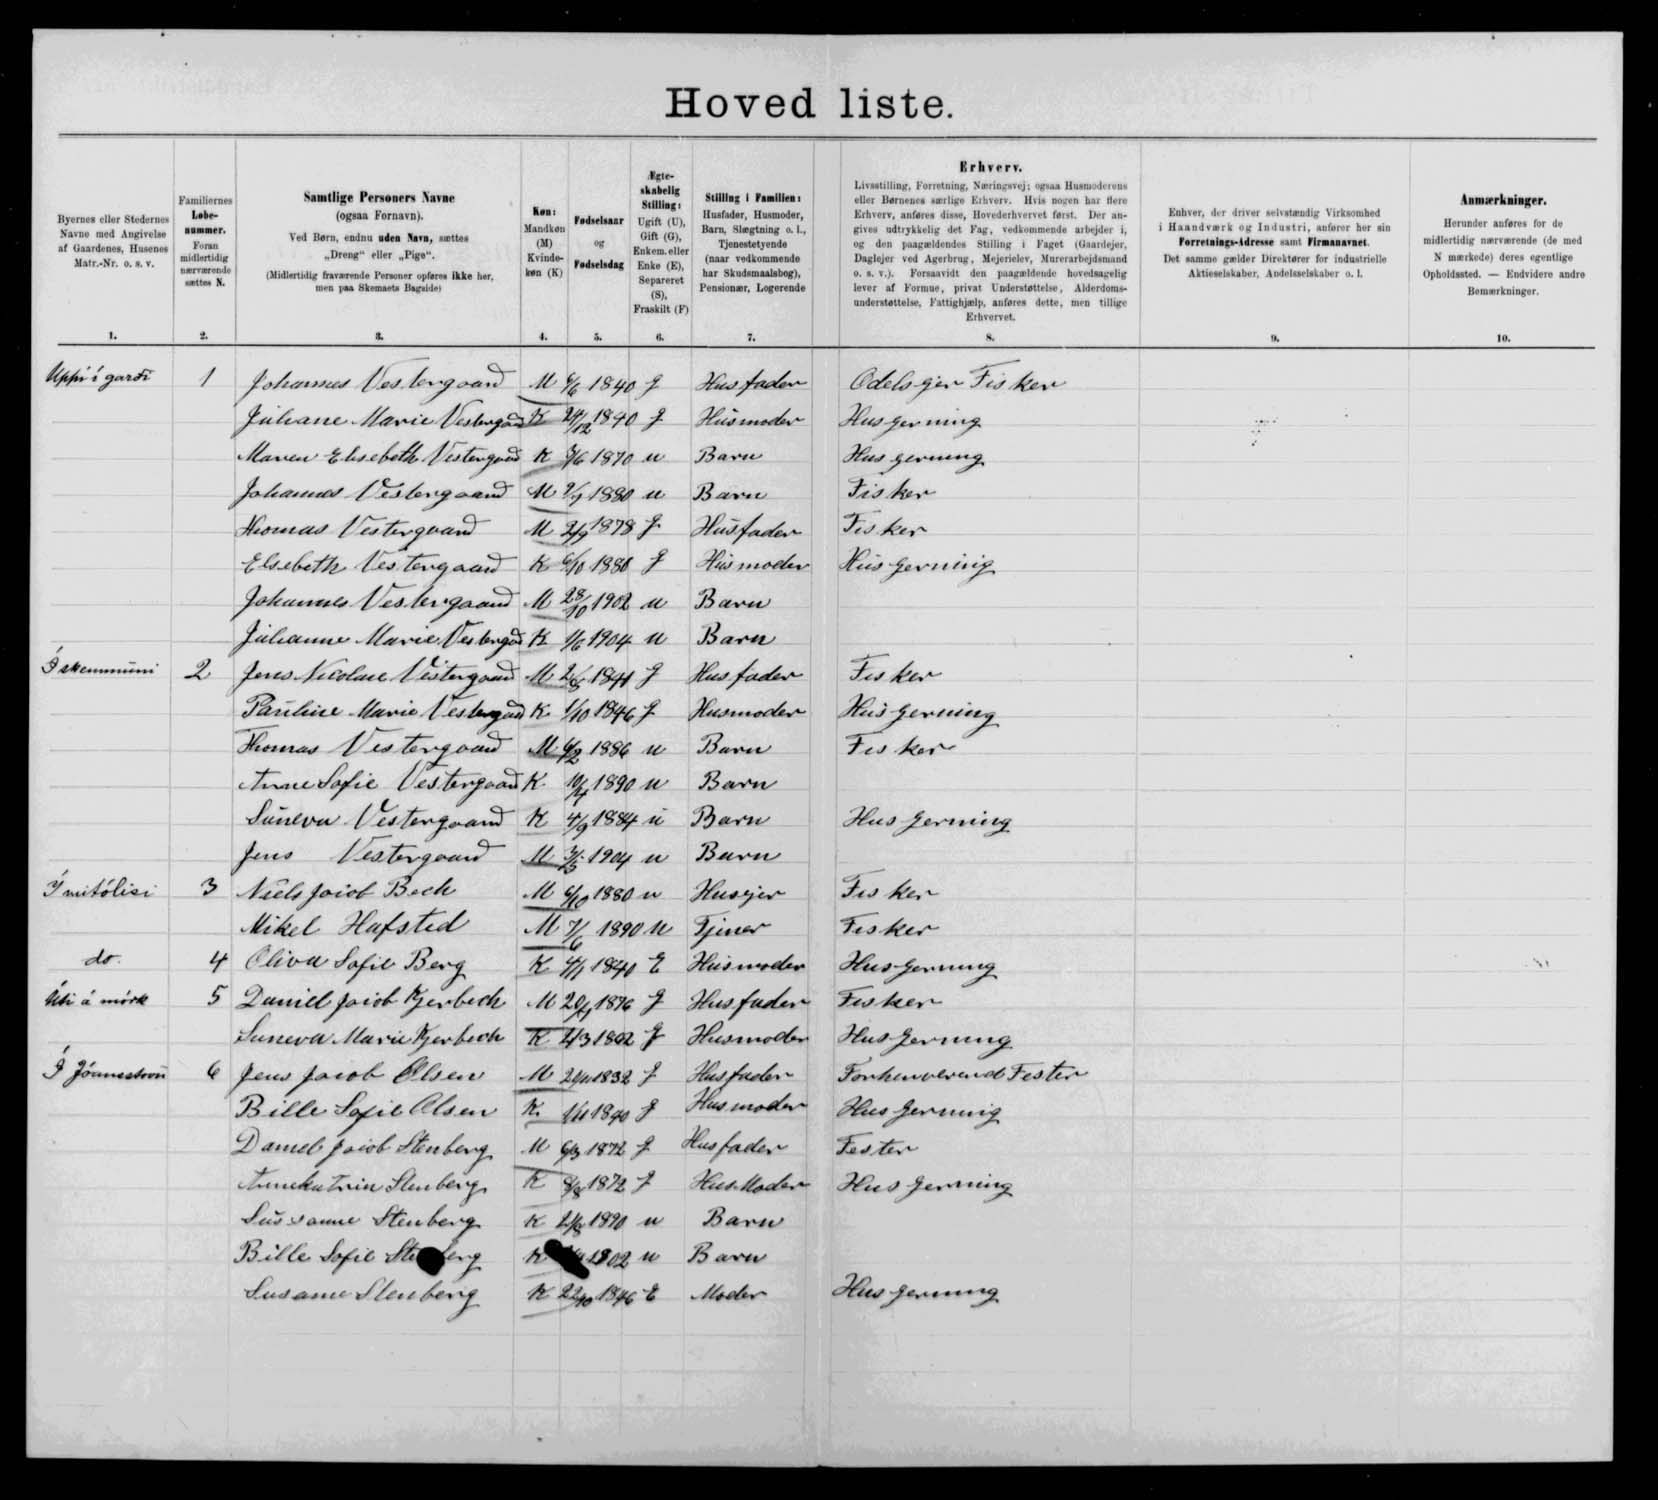 Hoved liste.
Byernes eller Stedernes
Navne med Angivelse
af Gaardenes, Husenes
Matr.-Nr. o. s. v.
1.
Familiernes
Løbe-
nummer.
Foran
midlertidig
nærværende
sættes N.
2.
Samtlige Personers Navne
(ogsaa Fornavn).
Ved Børn, endnu uden Navn, sættes
„Dreng“ eller „Pige“.
(Midlertidig fraværende Personer opføres ikke her,
men paa Skemaets Bagside)
3.
Køn:
Mandkøn
(M)
Kvinde-
køn (K)
4.
Fødselsaar
og
Fødselsdag
5.
Ægte-
skabelig
Stilling:
Ugift (U),
Gift (G),
Enkem. eller
Enke (E),
Separeret
(S),
Fraskilt (F)
6.
Stilling i Familien:
Husfader, Husmoder,
Barn, Slægtning o. l.,
Tjenestetyende
(naar vedkommende
har Skudsmaalsbog),
Pensionær, Logerende
7.
Erhverv.
Livsstilling, Forretning, Næringsvej; ogsaa Husmoderens
eller Børnenes særlige Erhverv. Hvis nogen har flere
Erhverv, anføres disse, Hovederhvervet først. Der an-
gives udtrykkelig det Fag, vedkommende arbejder i,
og den paagældendes Stilling i Faget (Gaardejer,
Daglejer ved Agerbrug, Mejerielev, Murerarbejdsmand
o. s. v.). Forsaavidt den paagældende hovedsagelig
lever af Formue, privat Understøttelse, Alderdoms-
understøttelse, Fattighjælp, anføres dette, men tillige
Erhvervet.
8.
Enhver, der driver selvstændig Virksomhed
i Haandværk og Industri, anfører her sin
Forretnings-Adresse samt Firmanavnet.
Det samme gælder Direktører for industrielle
Aktieselskaber, Andelsselskaber o. l.
9.
Anmærkninger.
Herunder anføres for de
midlertidig nærværende (de med
N mærkede) deres egentlige
Opholdssted. — Endvidere andre
Bemærkninger.
10.
Uppi í garði 1 Johannes Vestergaard M 6/6 1840 G Husfader Odelsejer Fisker
Juliane Marie Vestergaard K 24/12 1840 G Husmoder Husgerning
Maren Elsebeth Vestergaard K 1870 u Barn Husgerning
Johannes Vestergaard M 1880 u Barn Fisker
Thomas Vestergaard M 2/9 1878 G Husfader Fisker
Elsebeth Vestergaard K 6/10 1880 G Husmoder Husgerning
Johannes Vestergaard M 28/10 1902 u Barn
Julianne Marie Vestergaard K 1/6 1904 u Barn
Í skemmuni 2 Jens Nicolai Vestergaard M 2/8 1841 G Husfader Fisker
Pauline Marie Vestergaard K. 1/10 1846 G Husmoder Husgerning
Thomas Vestergaard M 6/2 1886 u Barn Fisker
Anne Sofie Vestergaard K. 10/4 1890 u Barn
Suneva Vestergaard K 4/9 1884 u Barn Husgerning
Jens Vestergaard M 3/3 1904 u Barn
3 Niels Jacob Bech M 6/10 1880 u Husejer Fisker
Mikel Hafsted M 7/6 1890 u Tjener Fisker
do. 4 Oliva Sofie Berg K 4/1 1840 E Husmoder Husgerning
Úti á mörk 5 Daniel Jacob Kjerbech M 20/1 1876 G Husfader Fisker
Suneva Marie Kjerbech K G Husmoder Husgerning
6 Jens Jacob Olsen M 1832 G Husfader Forhenværende Fester
Bille Sofie Olsen K. 1840 G Husmoder Husgerning
Daniel Jacob Stenberg M 6/3 1872 G Husfader Fester
Annekatrin Stenberg K 8/8 1872 G HusModer Husgerning
Sussanne Stenberg K u Barn
Bille Sofie K 1902 u Barn
Susanne Stenberg K 22/10 1846 E Moder Husgerning